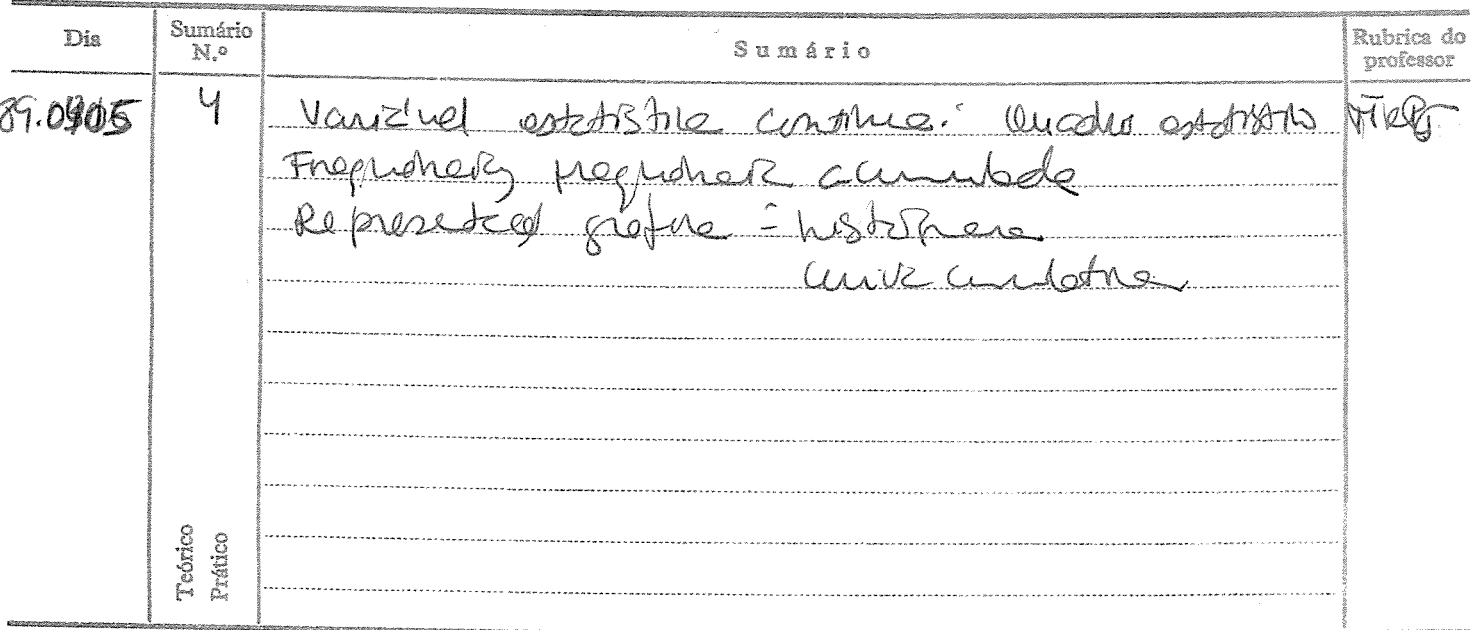 Dia
Sumário N.º
Sumário
Rubrica do professor
4
Variável estatística contínua: Quadro estatístico
Frequência, frequência acumulada
Representação gráfica - histograma
curva cumulativa
Teórico
Prático